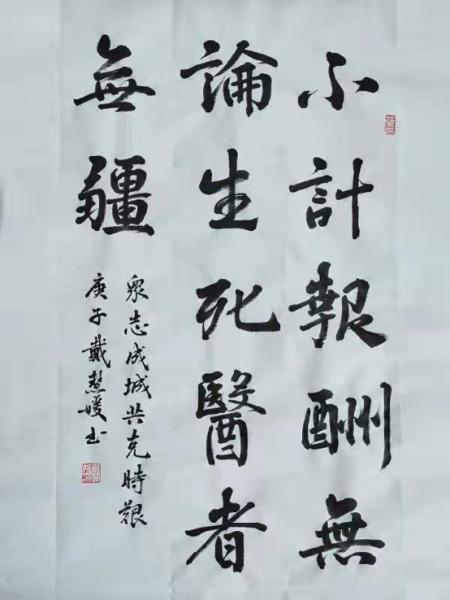 不計報酬無
論生死醫者
無疆
衆志成城共克時艱
庚子戴慧媛书